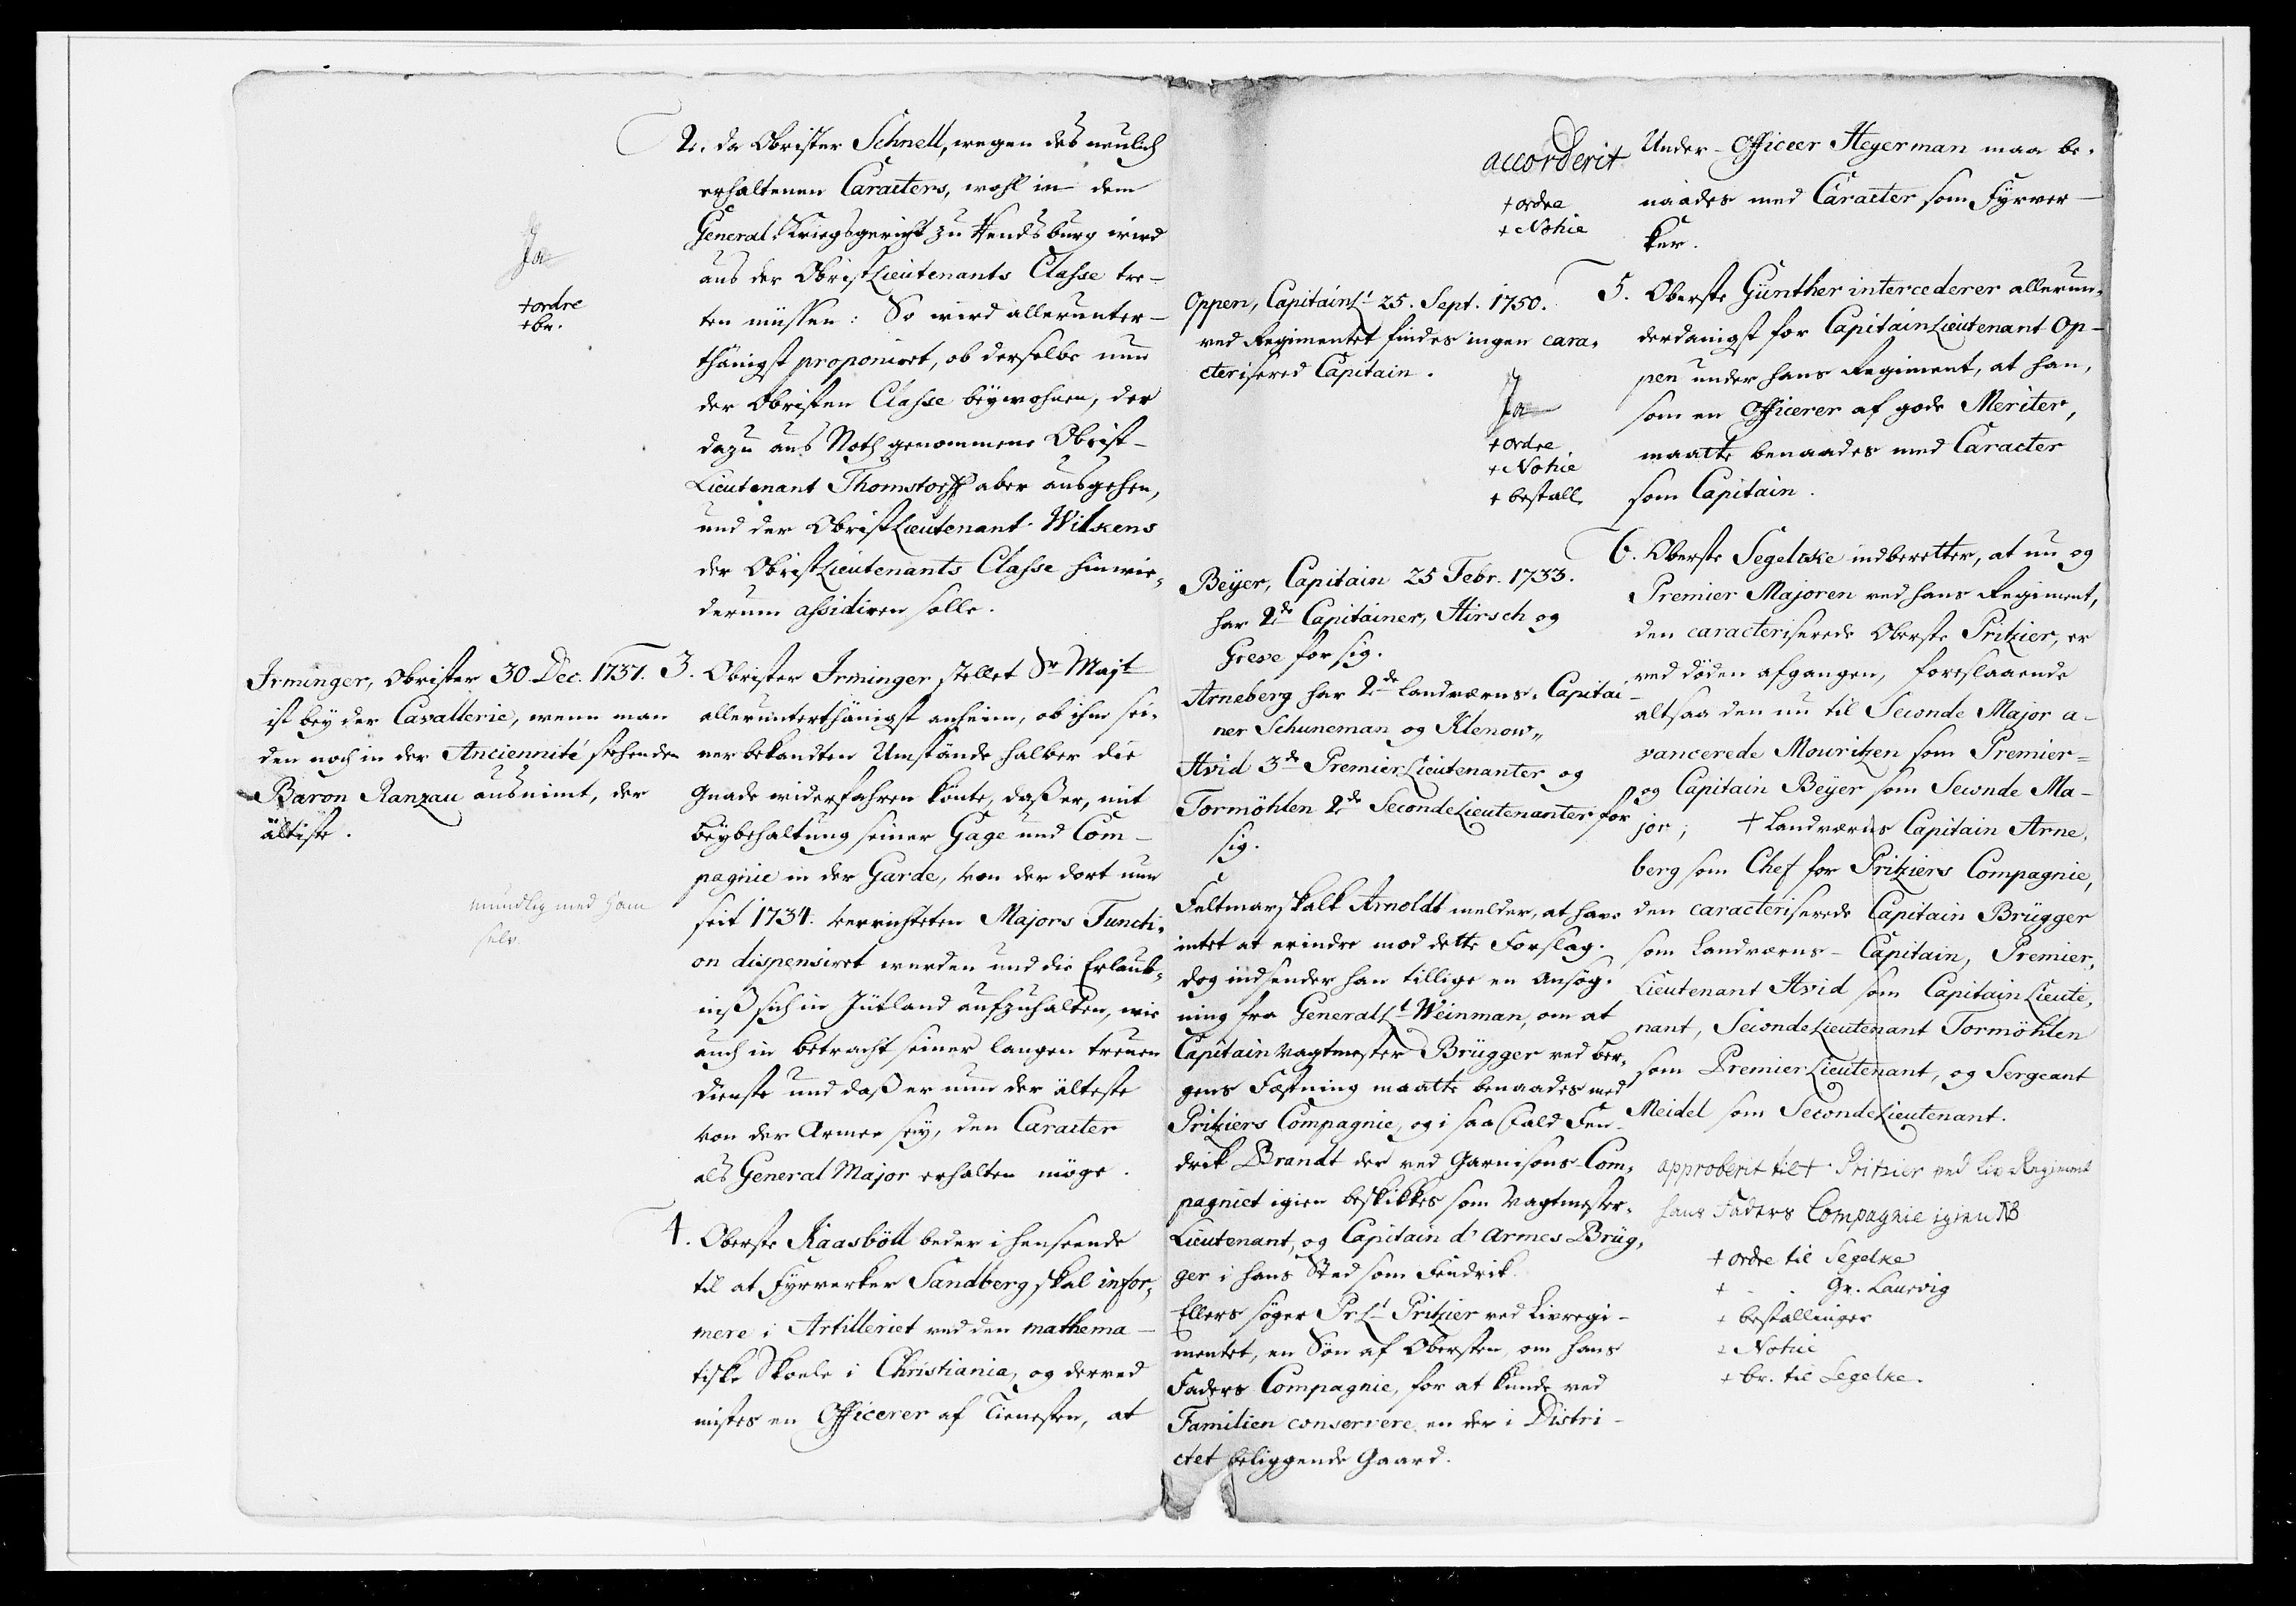 2. Da Obrister Schnell, wegen des neulich
erhaltenen Caracters, wohl in dem
General-Kriegsgericht zu Rendsburg wird
aus der ObristLieutenants Classe tre-
ten müssen: So wird allerunter-
thänigst proponiret, ob derselbe nun
der Obristen Classe beywohnen, der
dazu aus Noth genommene Obrist-
Lieutenant Thomstorff aber ausgehen,
und der ObristLieutenant Wilkens
der ObristLieutenants Classe hinwie-
derum assidiren solle.
Ja
+ ordre
+ br.
Irminger, Obrister 30 Dec. 1731.
ist bey der Cavallerie, wenn man
den noch in der Anciennité stehenden
Baron Ranzau ausnimt, der
ältiste.
mundlig med ham
selv.
3. Obrister Irminger stellet Sr Majt
allerunterthänigst anheim, ob ihm sei-
ner bekandten Umstände halber die
Gnade widerfahren könte, daß er, mit
Beybehaltung seiner Gage und Com-
pagnie in der Garde, von der dort nun
seit 1734. verrichteten Majors Functi-
on dispensiret werden und die Erlaub-
niß sich in Jütland aufzuhalten, wie
auch in Betracht seiner langen treuen
Dienste und daß er nun der älteste
von der Armee sey, den Caracter
als General Major erhalten möge.
4. Oberste Kaasböll beder i henseende
til at Fyrverker Sandberg skal infor-
mere i Artilleriet ved den mathema-
tiske Skoele i Christiania, og derved
mistes en Officerer af Tienesten, at
Under-Officeer Heyerman maa be-
naades med Caracter som Fyrver-
ker.
accorderit
+ ordre
+ Notice
Oppen, CapitainLt 25. Sept. 1750.
ved Regimentet findes ingen cara-
cteriseret Capitain.
Ja
+ ordre
+ Notice
+ bestall
5. Oberste Günther intercederer allerun-
derdanigst for CapitainLieutenant Op-
pen under hans Regiment, at han,
som en Officerer af gode Meriter,
maatte benaades med Caracter
som Capitain.
Beyer, Capitain 25 Febr. 1733.
har 2de Capitainer, Hirsch og
Greve for sig.
Arneberg har 2de Landværns-Capitai-
ner Schuneman og Klenow,,
Hvid 3de PremierLieutenanter og
Tormöhlen 2de SecondeLieutenanter for
sig.
Feltmarskalk Arnoldt melder, at have
intet at erindre mod dette Forslag.
dog indsender han tillige en Ansög-
ning fra GeneralLt Weinman, om at
Capitain Vagtmester Brügger ved Ber-
gens Fæstning maatte benaades med
Pritziers Compagnie, og i saa fald Fen-
drik Brandt der ved Garnisons-Com-
pagniet igien beskikkes som Vagtmester-
Lieutenant, og Capitain d'Armes Brüg-
ger i hans Sted som Fendrik.
Ellers söger Pr Lt Pritzier ved Livregi-
mentet, en Sön af Obersten, om hans
Faders Compagnie, for at kunde ved
Familien conservere en der i Distri-
ctet beliggende Gaard.
6. Oberste Segelcke indberetter, at nu og
Premier Majoren ved hans Regiment,
den caracteriserede Oberste Pritzier, er
ved döden afgangen, foreslaaende
altsaa den nu til Seconde Major a-
vancerede Mouritzen som Premier-
og Capitain Beyer som Seconde Ma-
jor; + Landværns Capitain Arne-
berg som Chef for Pritziers Compagnie,
den caracteriserede Capitain Brügger
som Landværns-Capitain, Premier-
Lieutenant Hvid som CapitainLieute-
nant, SecondeLieutenant Tormöhlen
som PremierLieutenant, og Sergeant
Meidel som SecondeLieutenant.
approberit til + Pritzier ved Liv Regiment
hans Faders Compagnie igien NB
+ ordre til Segelke
+ - - Gr. Laurvig
+ bestallinger
+ Notice
+ br. til Segelke.